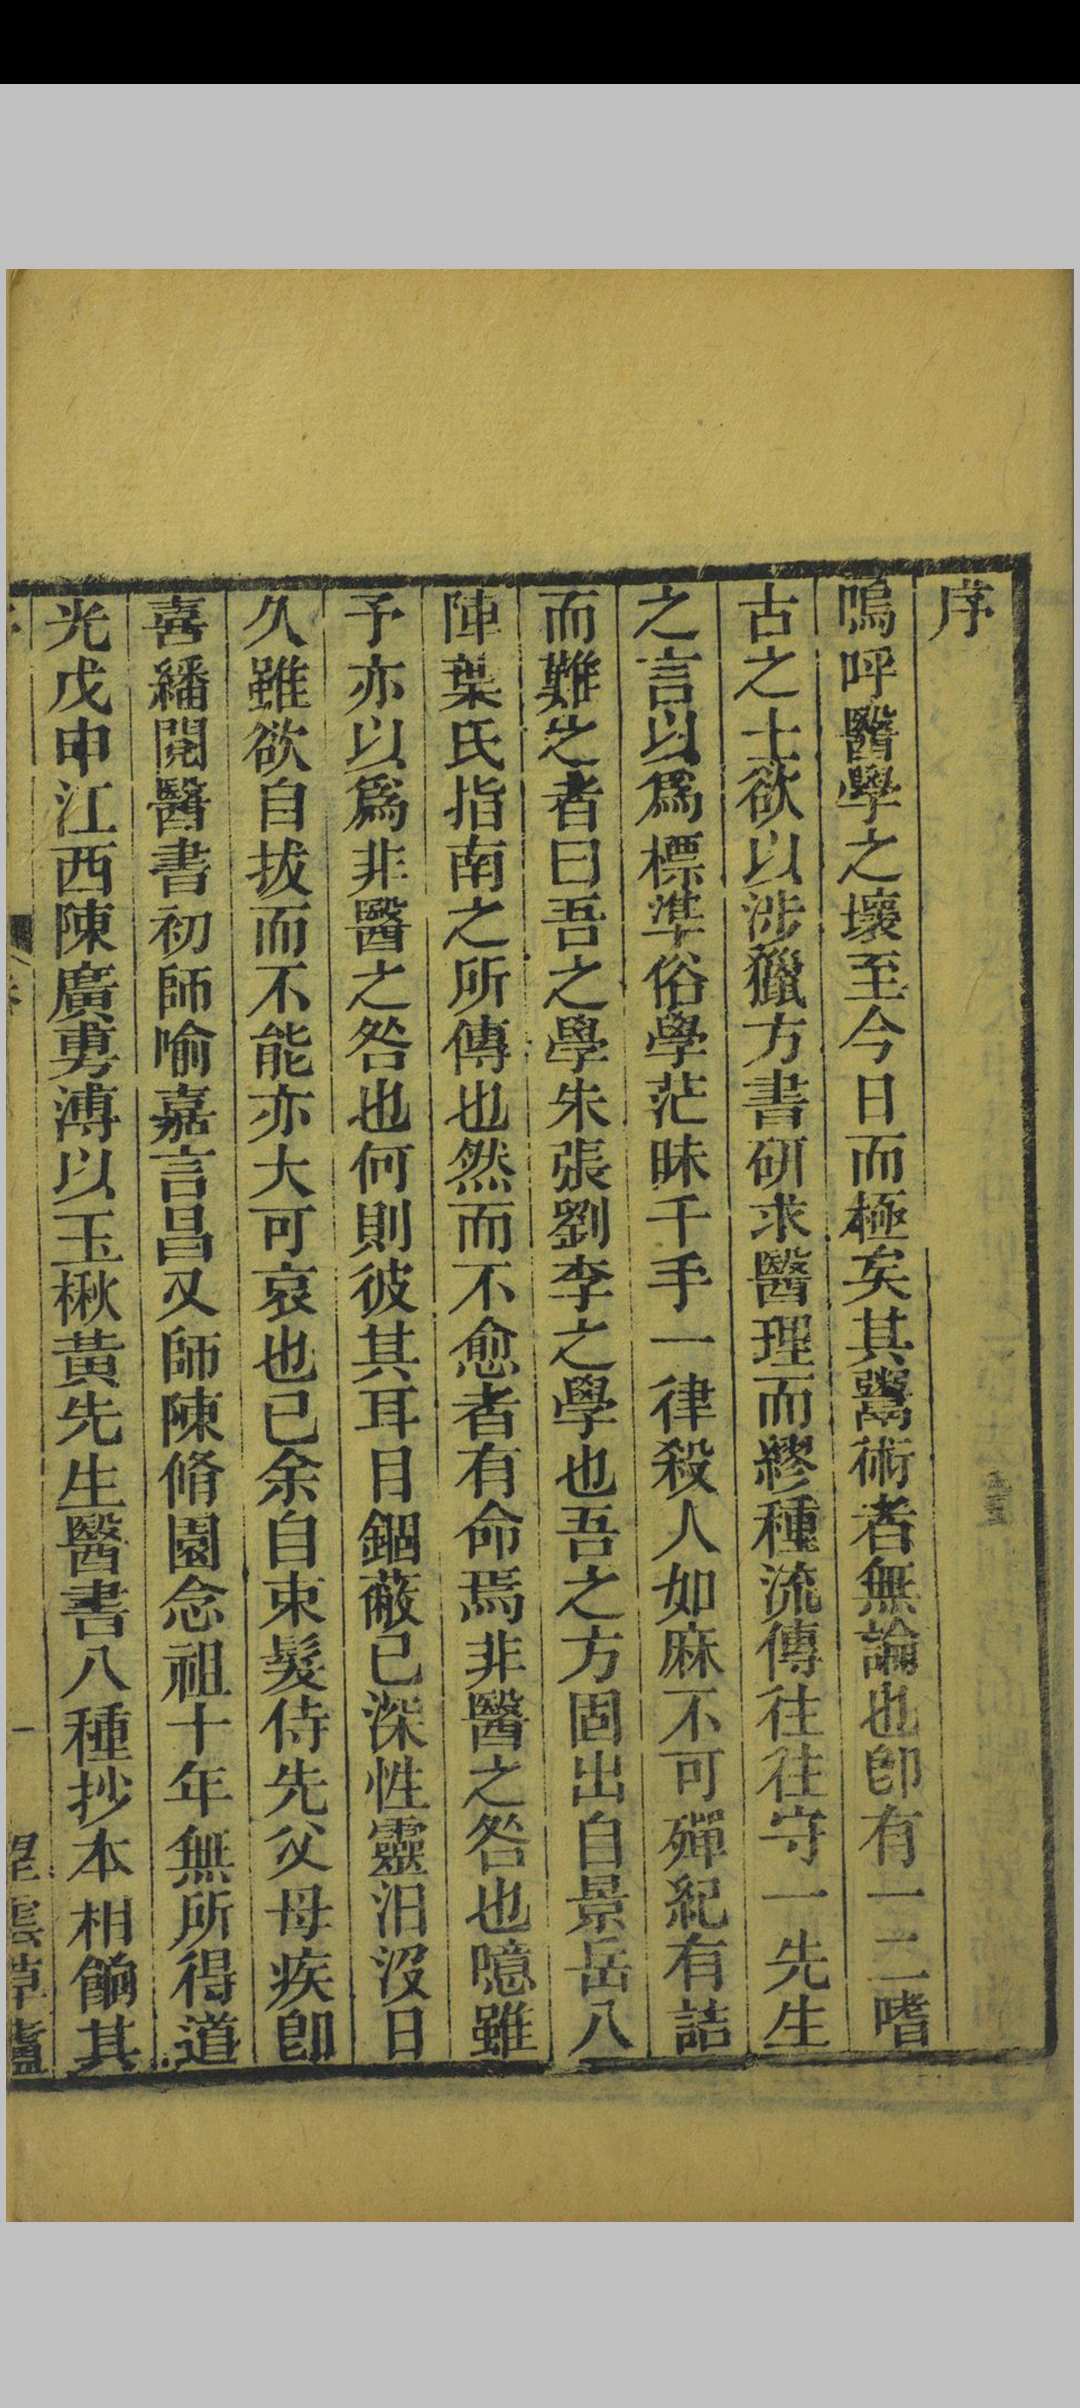 序
嗚呼醫學之壞至今日而極矣其鬻術者無論也卽有一二嗜
古之士欲以涉獵方書研求醫理而繆種流傳往往守一先生
之言以爲標準俗學茫昧千手一律殺人如麻不可殫紀有詰
而難之者曰吾之學朱張劉李之學也吾之方固出自景岳八
陣葉氏指南之所傳也然而不愈者有命焉非醫之咎也噫雖
予亦以爲非醫之咎也何則彼其耳目錮蔽已深性靈汨沒日
久雖欲自拔而不能亦大可哀也已余自束髮侍先父母疾卽
喜繙閱醫書初師喻嘉言昌又師陳脩園念祖十年無所得道
光戊申江西陳廣旉溥以玉楸黃先生醫書八種抄本相餉其
序
一